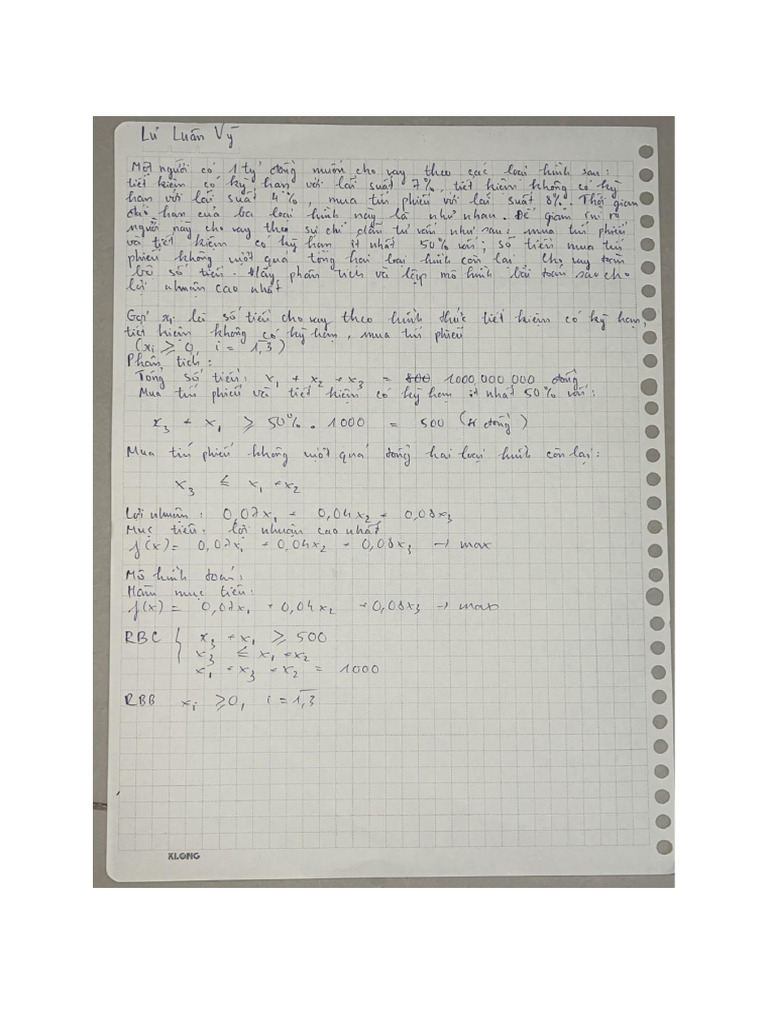 Lư Luân Vỹ
Một người có 1 tỷ đồng muốn cho vay theo các loại hình sau:
tiết kiệm có kỳ hạn với lãi suất 7%, tiết kiệm không có kỳ
hạn với lãi suất 4%, mua tín phiếu với lãi suất 8%. Thời gian
đáo hạn của ba loại hình này là như nhau. Để giảm rủi ro
người này cho vay theo sự chỉ dẫn tư vấn như sau: mua tín phiếu
và tiết kiệm có kỳ hạn ít nhất 50% vốn; số tiền mua tín
phiếu không vượt quá tổng hai loại hình còn lại. Cho vay toàn
bộ số tiền. Hãy phân tích và lập mô hình bài toán sao cho
lợi nhuận cao nhất
Gọi xᵢ là số tiền cho vay theo hình thức tiết kiệm có kỳ hạn,
tiết kiệm không có kỳ hạn, mua tín phiếu
(xᵢ ⩾ 0, i = 1,3)
Phân tích:
Tổng số tiền: x₁ + x₂ + x₃ = 1000,000,000 đồng
Mua tín phiếu và tiết kiệm có kỳ hạn ít nhất 50% vốn:
x₃ + x₁ ⩾ 50% . 1000 = 500 (tr đồng)
Mua tín phiếu không vượt quá tổng hai loại hình còn lại:
x₃ ≤ x₁ + x₂
Lợi nhuận: 0,07x₁ + 0,04x₂ + 0,08x₃
Mục tiêu: lợi nhuận cao nhất
f(x) = 0,07x₁ + 0,04x₂ + 0,08x₃ → max
Mô hình toán:
Hàm mục tiêu:
f(x) = 0,07x₁ + 0,04x₂ + 0,08x₃ → max
RBC { x₃ + x₁ ⩾ 500
x₃ ≤ x₁ + x₂
x₁ + x₃ + x₂ = 1000
RBB xᵢ ⩾ 0, i = 1,3
KLONG